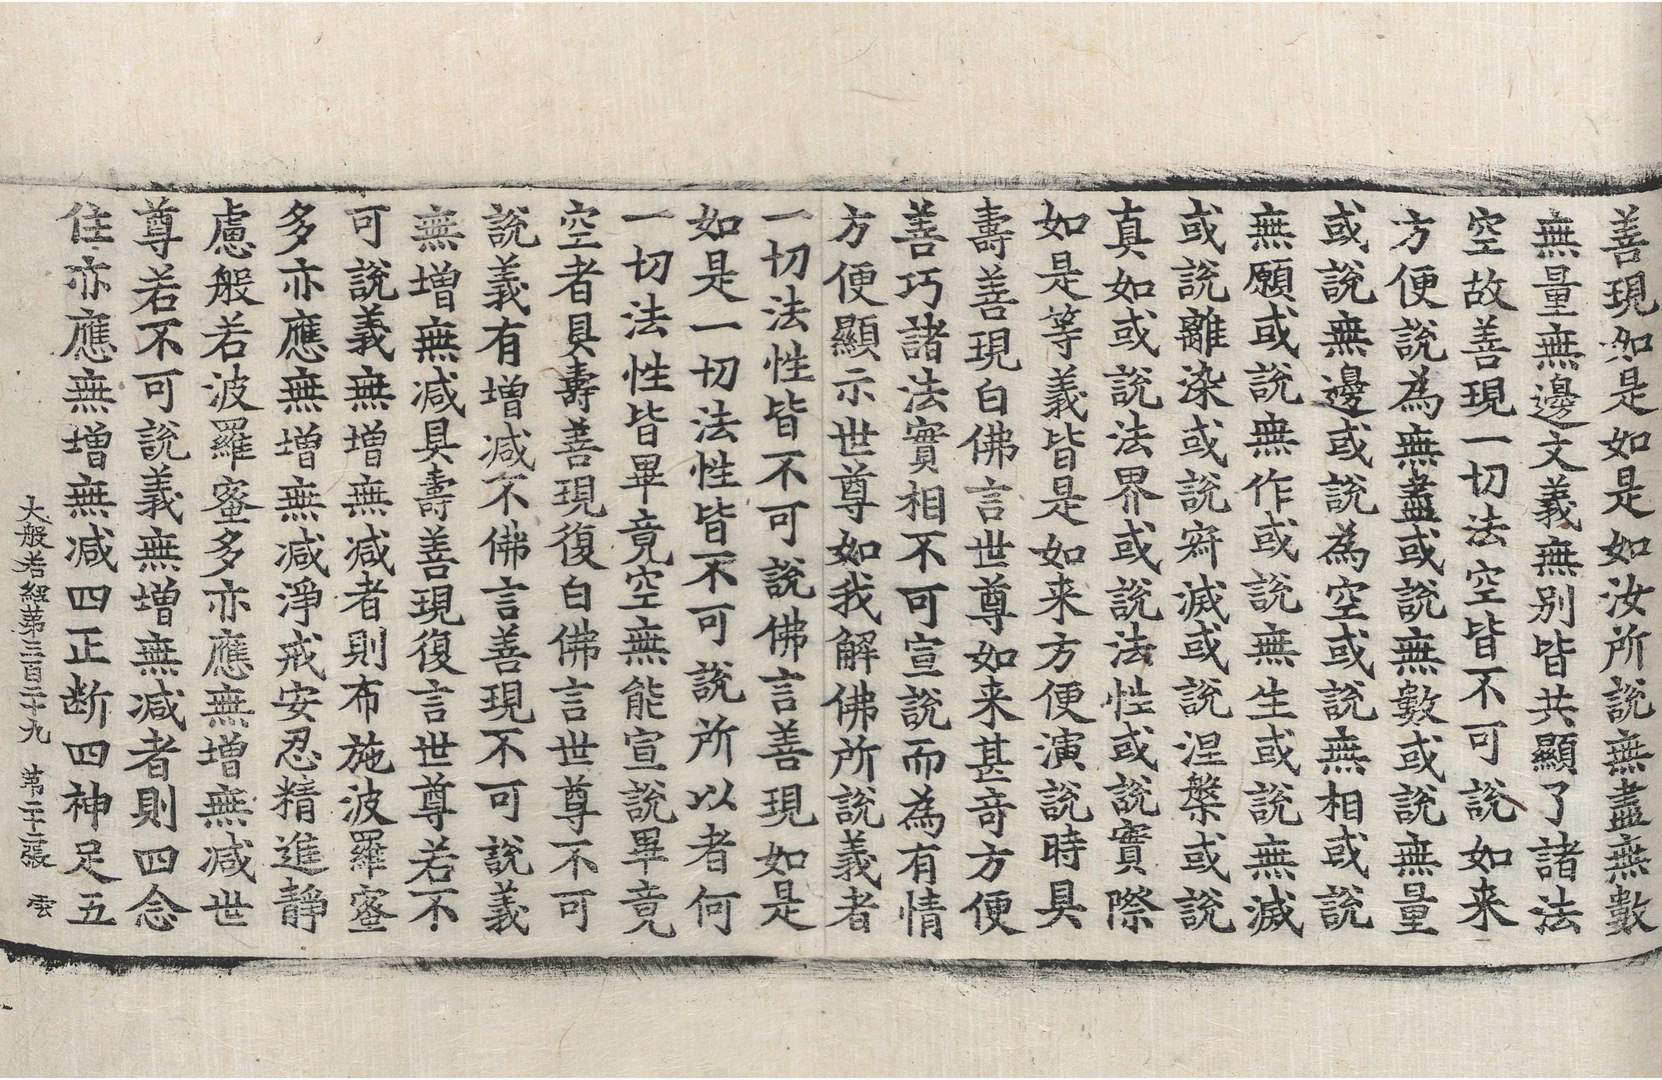 善現如是如是如汝所説無盡無數
無量無邊文義無別皆共顯了諸法
空故善現一切法空皆不可説如来
方便説為無盡或説無數或説無量
或説無邊或説為空或説無相或説
無願或説無作或説無生或説無滅
或説離染或説寂滅或説涅槃或説
真如或説法界或説法性或説實際
如是等義皆是如来方便演説時具
壽善現白佛言世尊如来甚奇方便
善巧諸法實相不可宣説而為有情
方便顯示世尊如我解佛所説義者
一切法性皆不可説佛言善現如是
如是一切法性皆不可説所以者何
一切法性皆畢竟空無能宣説畢竟
空者具壽善現復白佛言世尊不可
説義有增減不佛言善現不可説義
無增無減具壽善現復言世尊若不
可説義無增無減者則布施波羅蜜
多亦應無增無減淨戒安忍精進靜
慮般若波羅蜜多亦應無增無減世
尊若不可説義無增無減者則四念
住亦應無增無減四正断四神足五
大般若經第三百二十九 第二十二張 雲